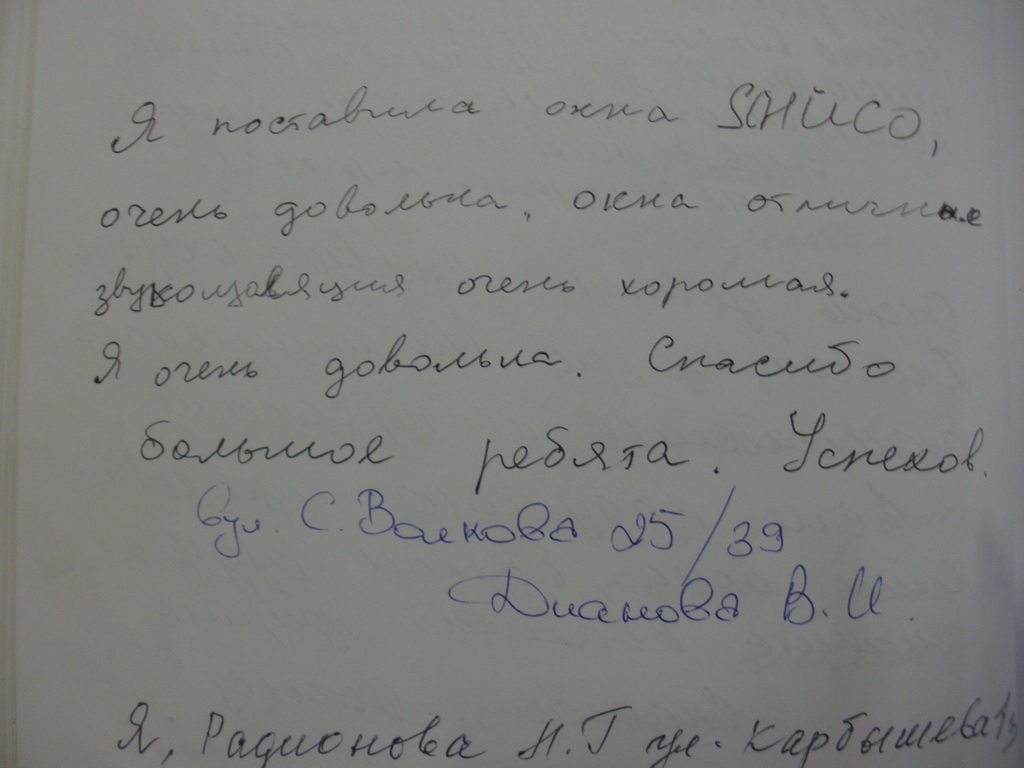 Я поставила окна SCHÜCO,
очень довольна, окна отличные
очень хорошая.
Я очень довольна. Спасибо
большое ребята. Успехов.
вул. С. Волкова 25/39
Дианова В. И.
Я, Радионова Н.Г ул. Карбышева